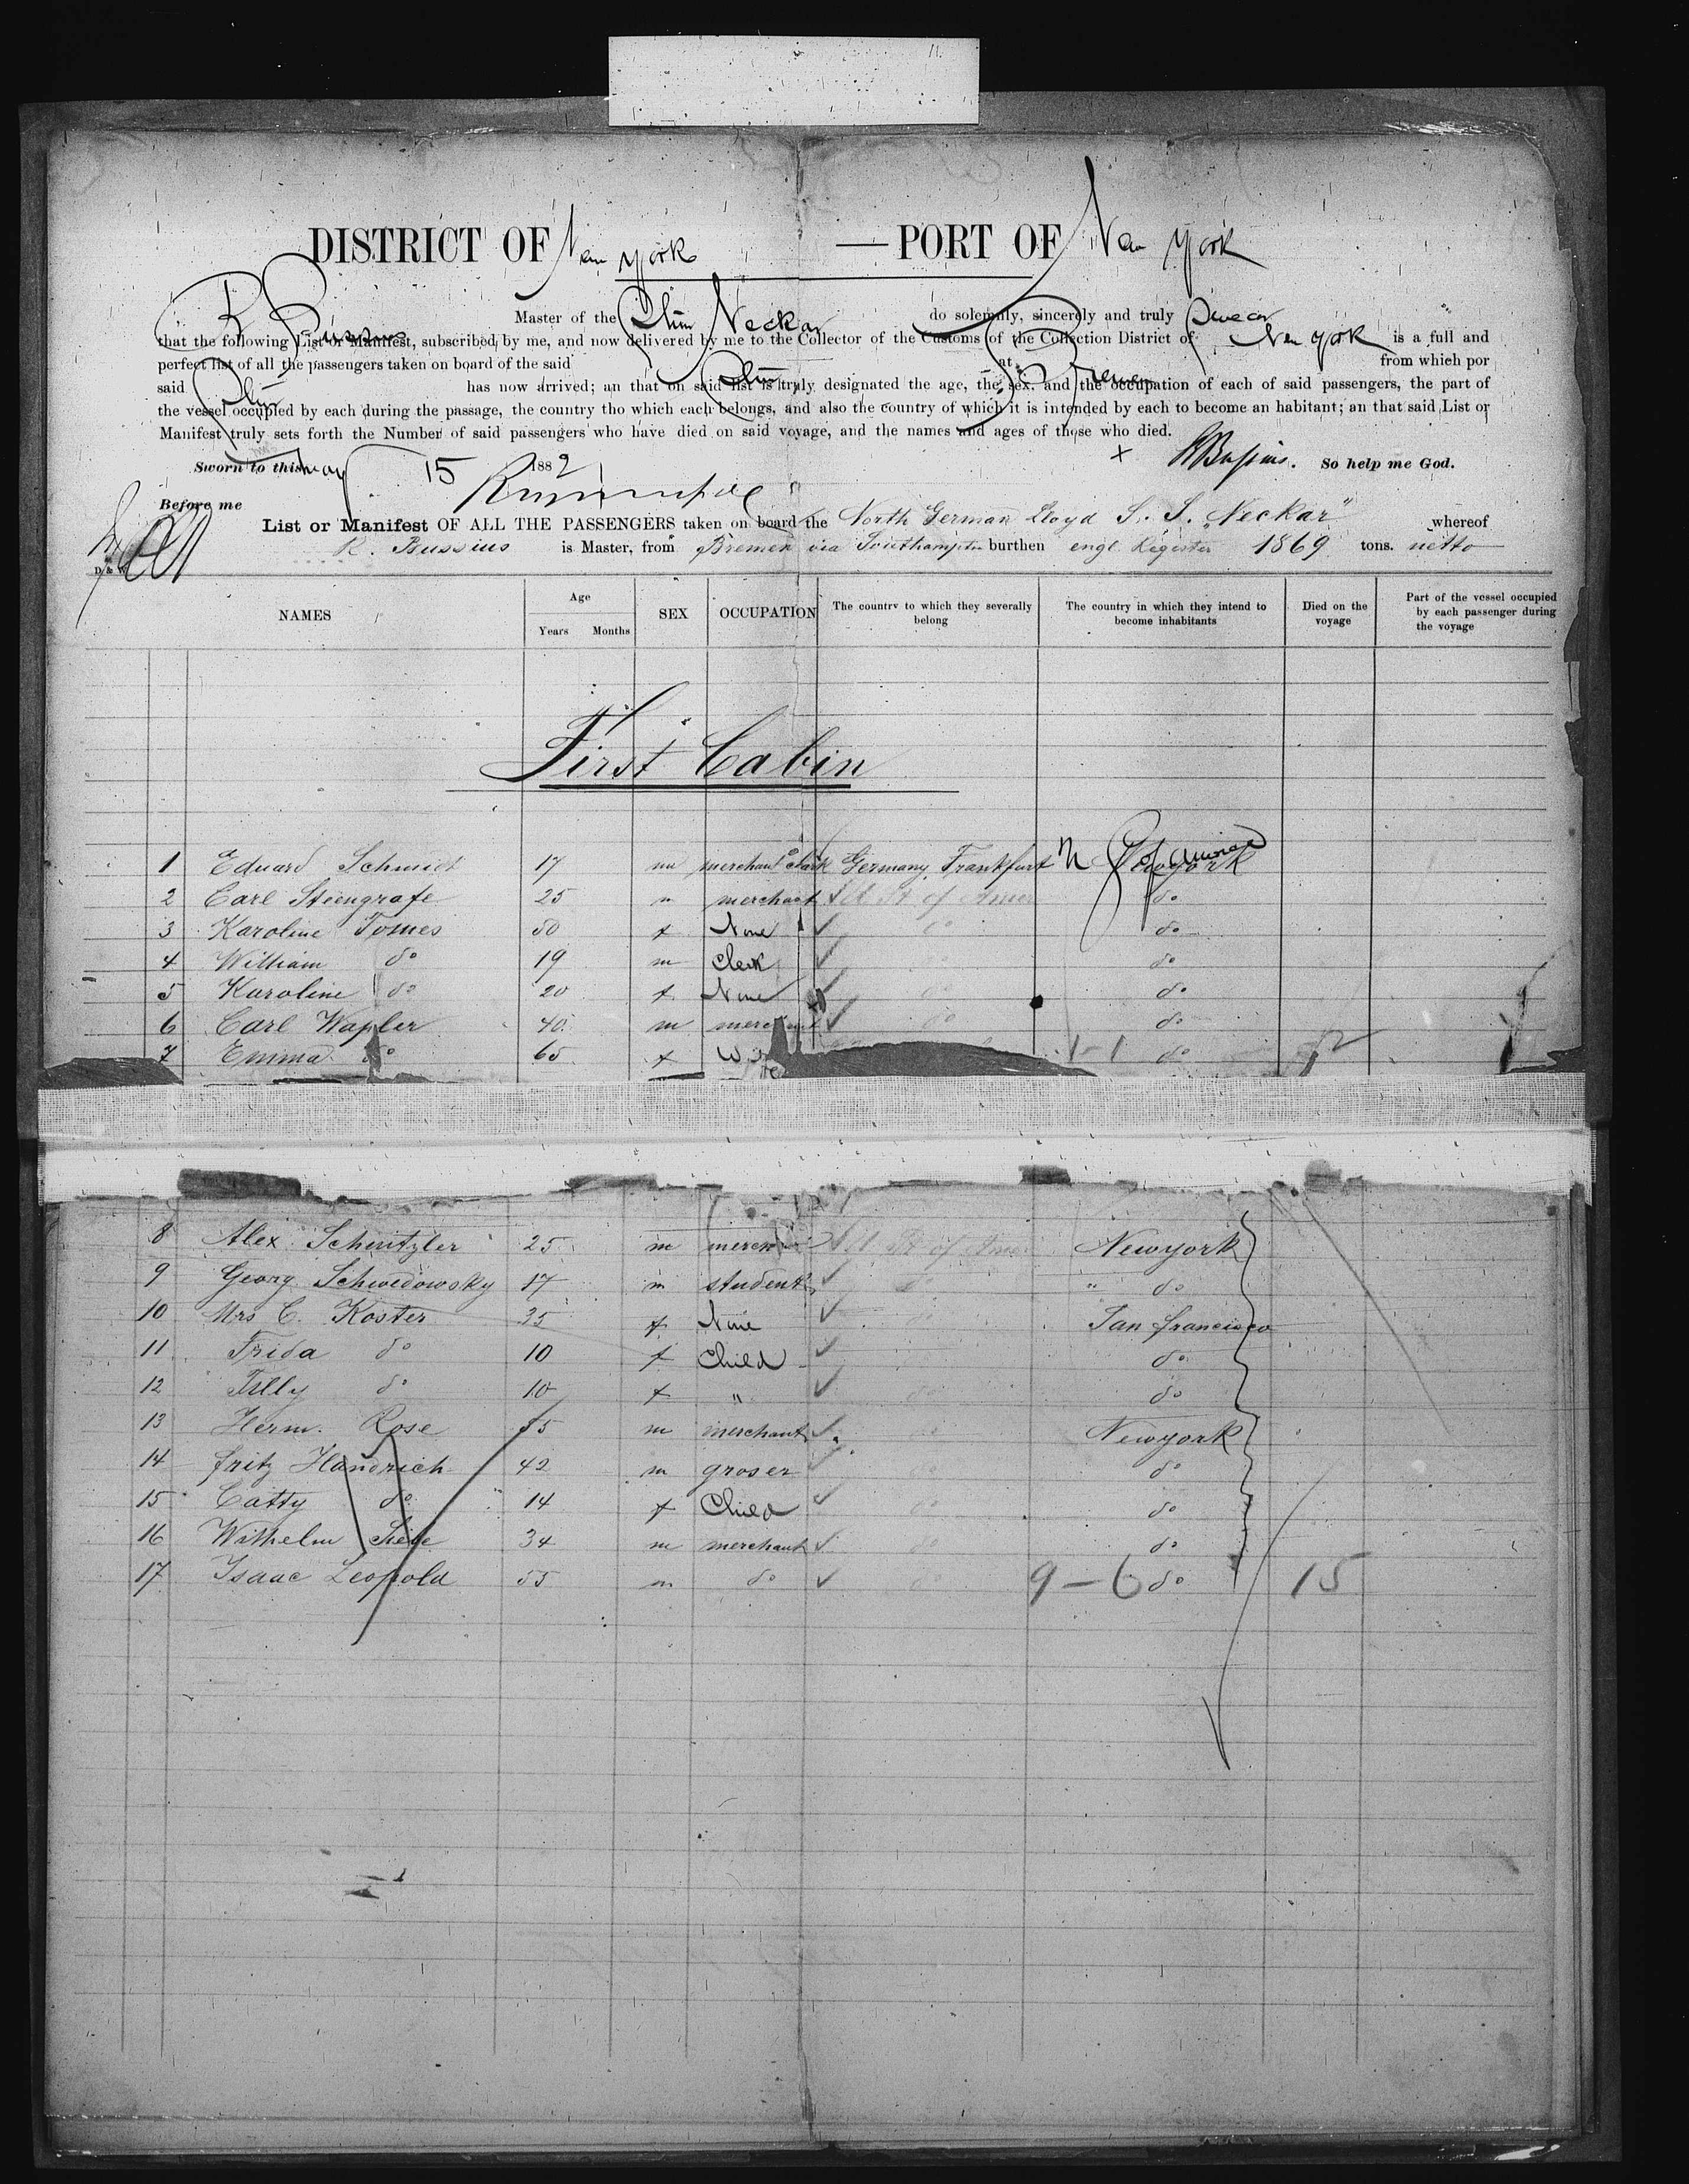 DISTRICT OF New York — PORT OF New York
R Bussius Master of the Ship Neckar do solemnly, sincerely and truly Swear
that the following List or Manifest, subscribed by me, and now delivered by me to the Collector of the Customs of the Collection District of New York is a full and
perfect list of all the passengers taken on board of the said Ship at Bremen from which por
said Ship has now arrived; an that on said list is truly designated the age, the sex, and the occupation of each of said passengers, the part of
the vessel occupied by each during the passage, the country tho which each belongs, and also the country of which it is intended by each to become an habitant; an that said List or
Manifest truly sets forth the Number of said passengers who have died on said voyage, and the names and ages of those who died.
Sworn to this May 15 1882 + RBussius. So help me God.
Before me
List or Manifest OF ALL THE PASSENGERS taken on board the North German Lloyd S. S. „Neckar" whereof
R. Bussius is Master, from Bremen via Southampton burthen engl. Register 1869 tons. netto
D & W
NAMES Age Years Months SEX OCCUPATION The country to which they severally belong The country in which they intend to become inhabitants Died on the voyage Part of the vessel occupied by each passenger during the voyage
First Cabin
1 Eduard Schmidt 17 m merchant clark Germany Frankfurt Newyork
2 Carl Steengrafe 25 m merchant U St of Amer do
3 Karoline Tomes 50 f None do do
4 William do 19 m Clerk do do
5 Karoline do 20 f None do do
6 Carl Wapler 40 m merchant do do
7 Emma do 65 f 1-1 do
8 Alex Schnitzler 25 m merch U St of Amer Newyork
9 Georg Schwedowsky 17 m student do " do
10 Mrs C. Koster 35 f None do San francisco
11 Frida do 10 f Child do
12 Tilly do 10 f " do do
13 Herm. Rose m merchant do Newyork
14 fritz Handrich 42 m groser do do
15 Catty do 14 f Child do do
16 Wilhelm 34 m merchant do do
17 Isaac Leopold 55 m do do 9-6 do 15